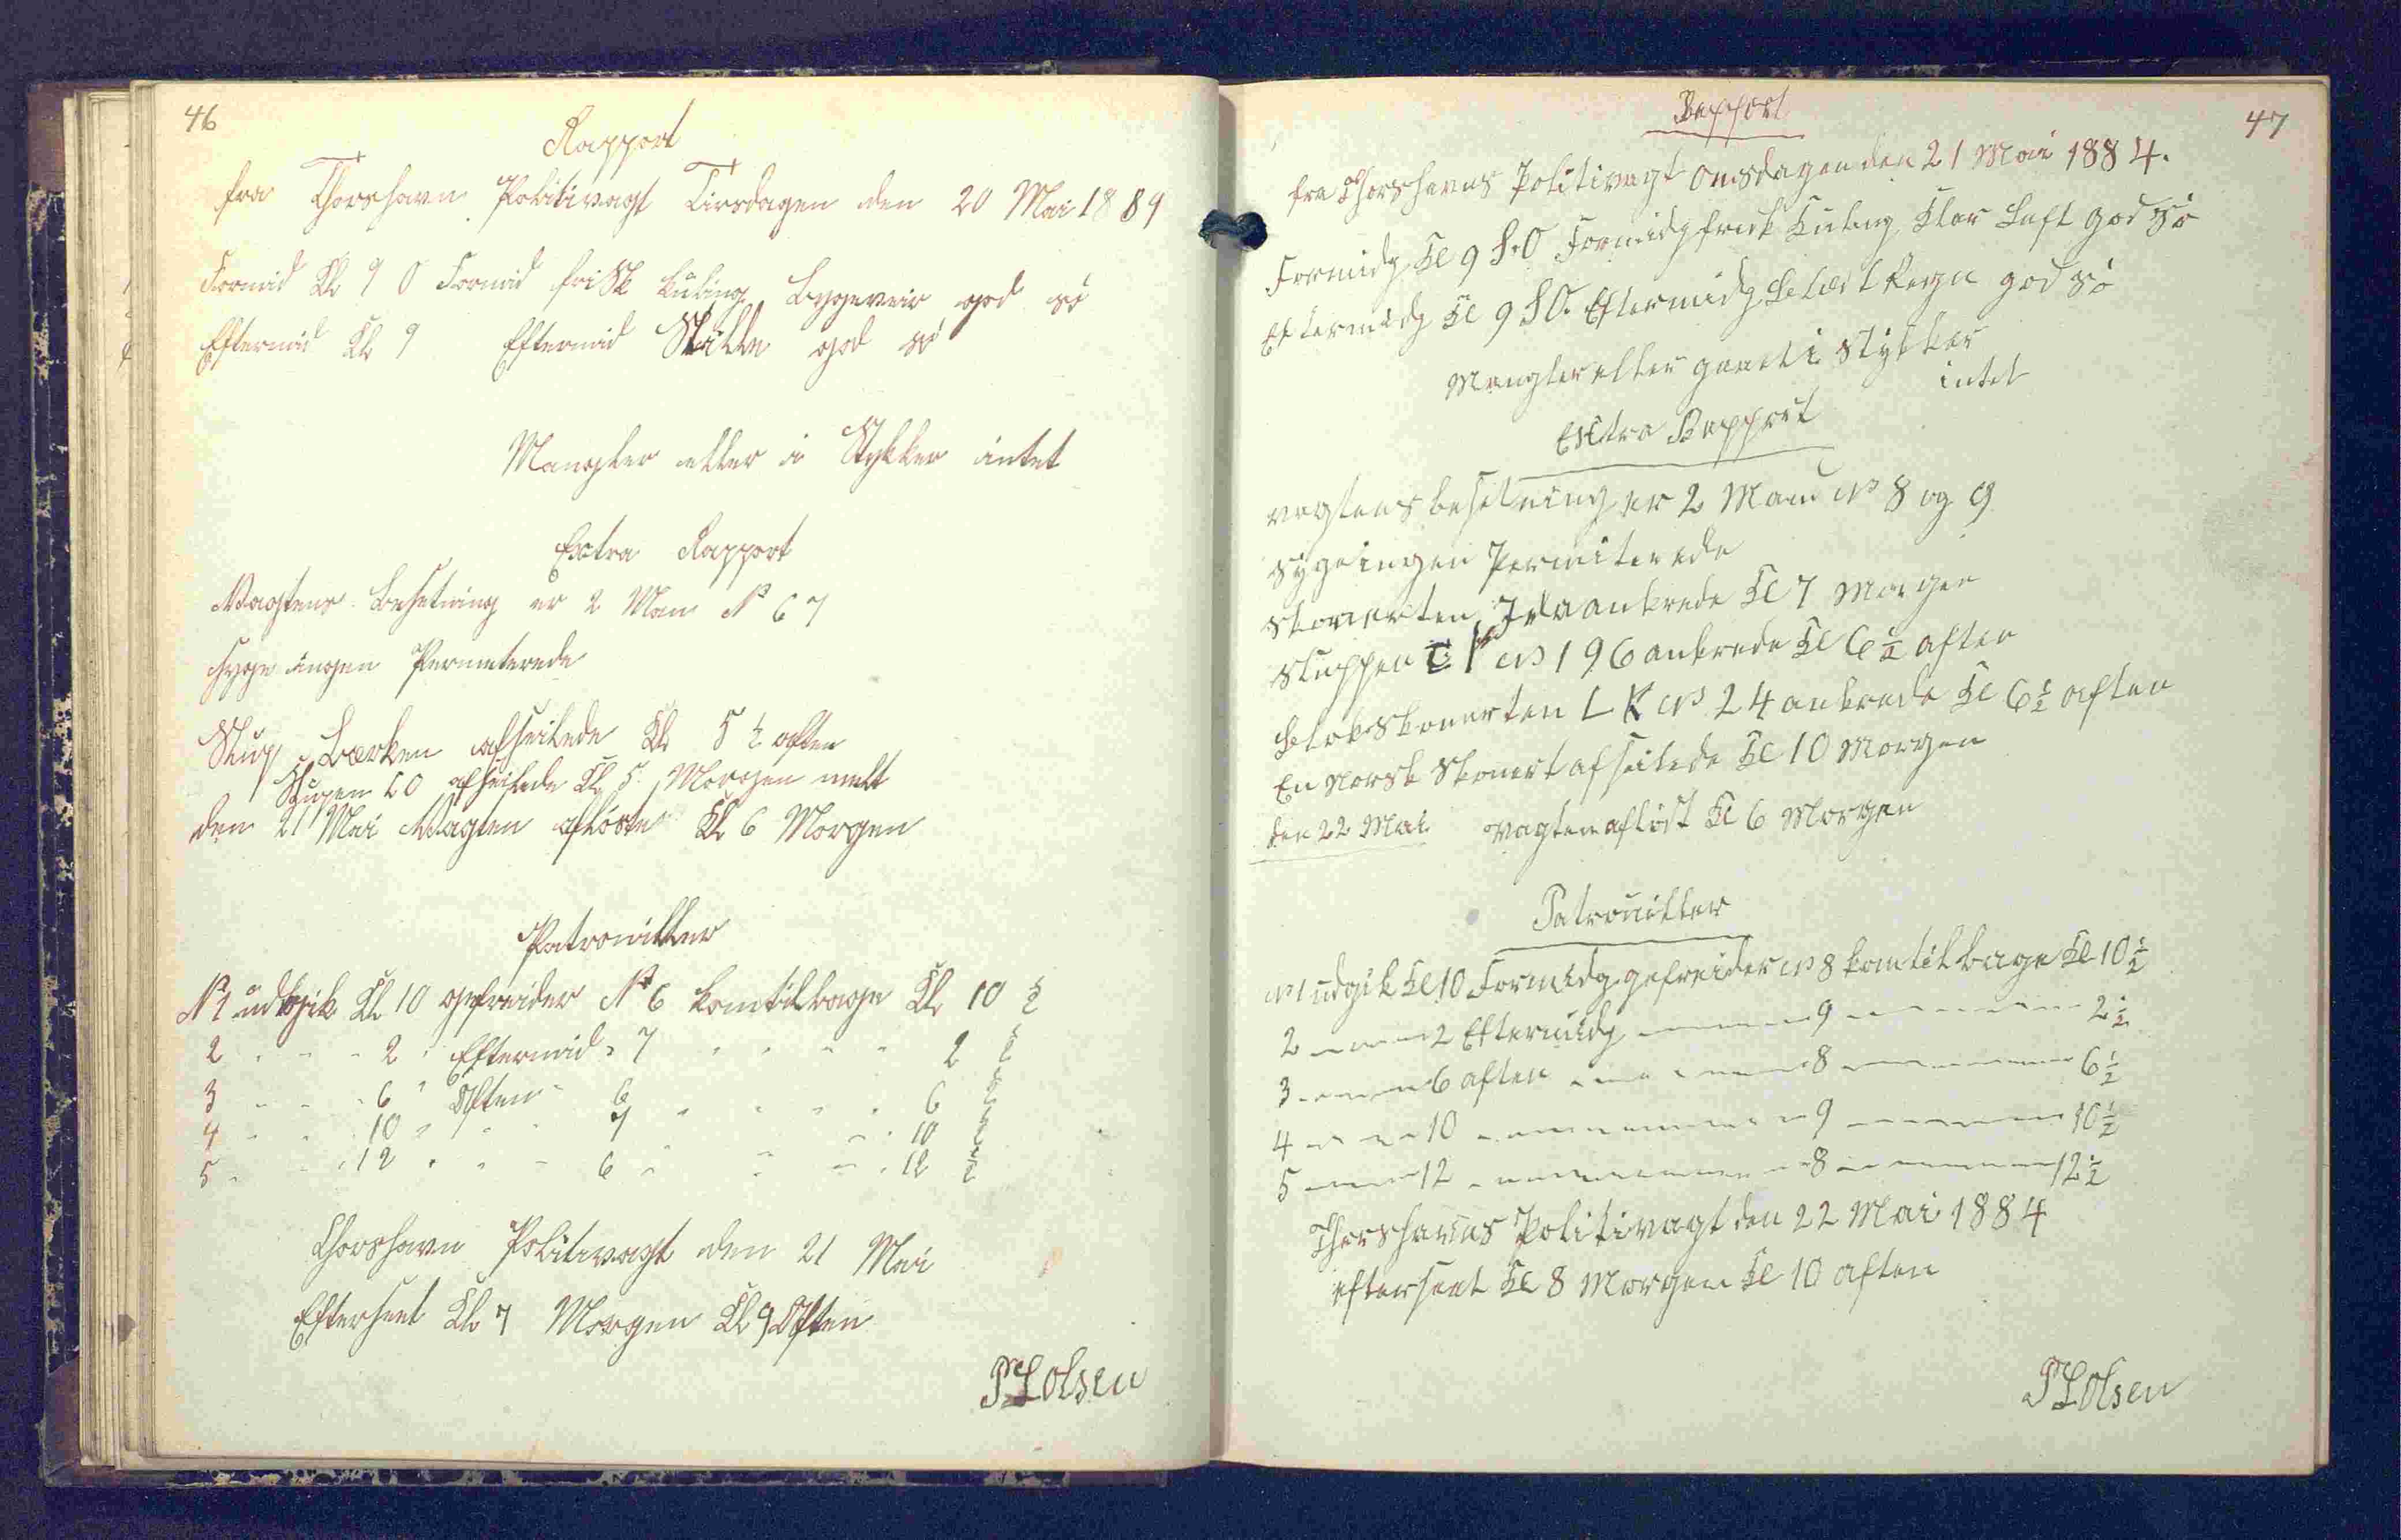 46
Rapport
fra Thorshavn Politivagt Tirsdagen den 20 Mai 1884
Formid Kl 9 O Formid frisk Kuling Byggeveir god sö
Eftermid Kl 9 Eftermid Stille god sö
Mangler eller i Stykker intet
Extra Rapport
Vagtens Besetning er 2 Man No 6 7
Syge ingen Permeterede
Slup Lærken afseilede Kl 5 ½ aften
Slupen afseilede Kl 5 Morgen
den 21 Mai Vagten aflöste Kl 6 Morgen
Patrouiller
No 1 udgik Kl 10 gefreider No 6 komtilbage Kl 10 ½
2 " " " 2 " Eftermid " 7 " " " " 2 ½
3 " " " 6 " Aften " 6 " " " " 6 ½
4 " " " 10 " " " 7 " " " 10 ½
5 " " " 12 " " " 6 " " " 12 ½
Thorshavn Politivagt den 21 Mai
Efterseet Kl 7 Morgen Kl 9 Aften
P L Olsen
47
Rapport
fra Thorshavns Politivagt Onsdagen den 21 Mai 1884.
Formidg Kl 9 S.O Formidg frisk Kuling Klar Luft god Sö
Eftermidg Kl 9 SO. Eftermidg Regn god Sö
Mangler eller gaaet i stykker
intet
Extra Rapport
vagtens besetning er 2 Man No 8 og 9
syge ingen Permiterede
skonerten Ida ankrede Kl 7 Morgen
sluppen No 196 ankrede Kl 6 ½ aften
skonerten L K No 24 ankrede Kl 6 ½ aften
En Norsk skonert afseilede Kl 10 Morgen
den 22 Mai vagten aflöst Kl 6 Morgen
Patrouiller
No 1 udgik Kl 10 Formidg gefreider No 8 kom tilbage Kl 10 ½
2 " " " 2 Eftermidg " " " 9 " " " 2 ½
3 " " " 6 aften " " " 8 " " " 6 ½
4 " " " 10 " " " 9 " " " 10 ½
5 " " " 12 " " " 8 " " " 12 ½
Thorshavns Politivagt den 22 Mai 1884
efterseet Kl 8 Morgen Kl 10 aften
P L Olsen